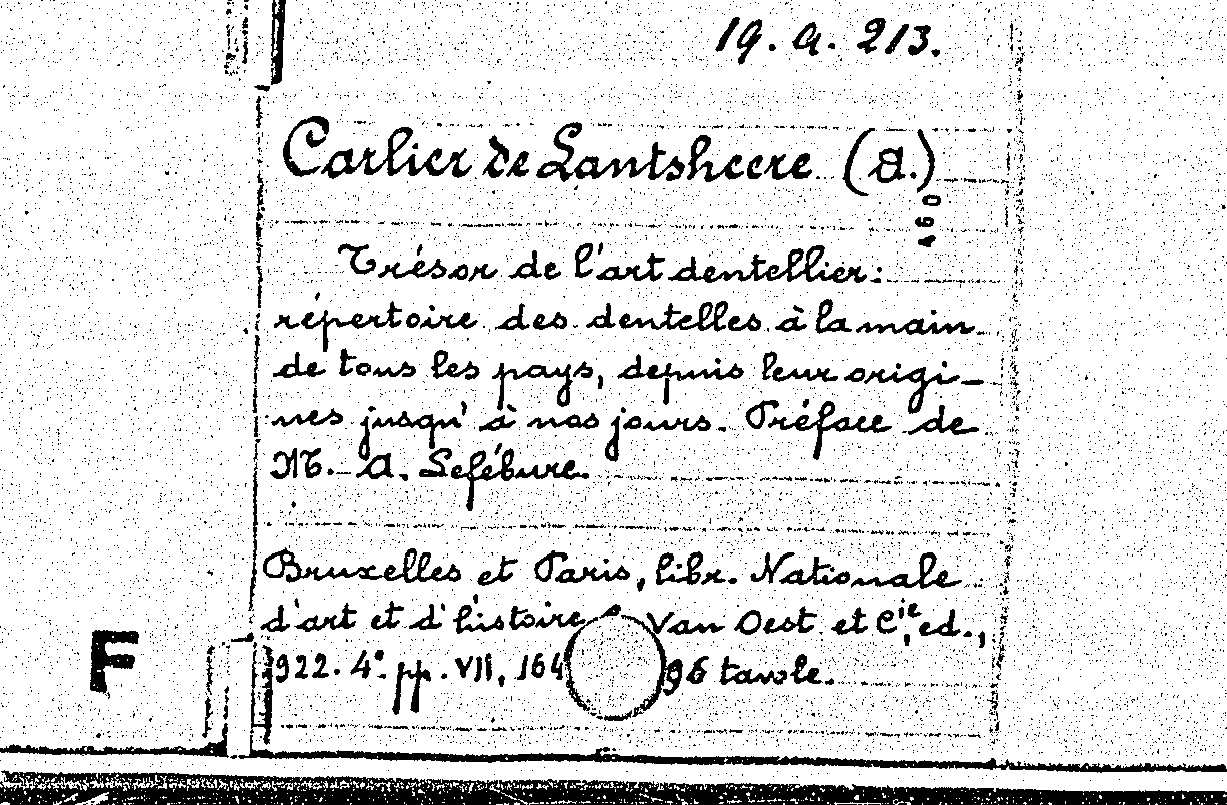 19. A. 213.
Carlier de Lantsheere (A.)
460
Trésor de l'art dentellier:
répertoire des dentelles à la main
de tous les pays, depuis leur origi-
nes jusqu'à nos jours. Préface de
M. A. Lefébure.
Bruxelles et Paris, libr. Nationale
d'art et d'histoire Van Oest et Cie, ed.,
922. 4º. pp. VII, 164 96 tavole.
F